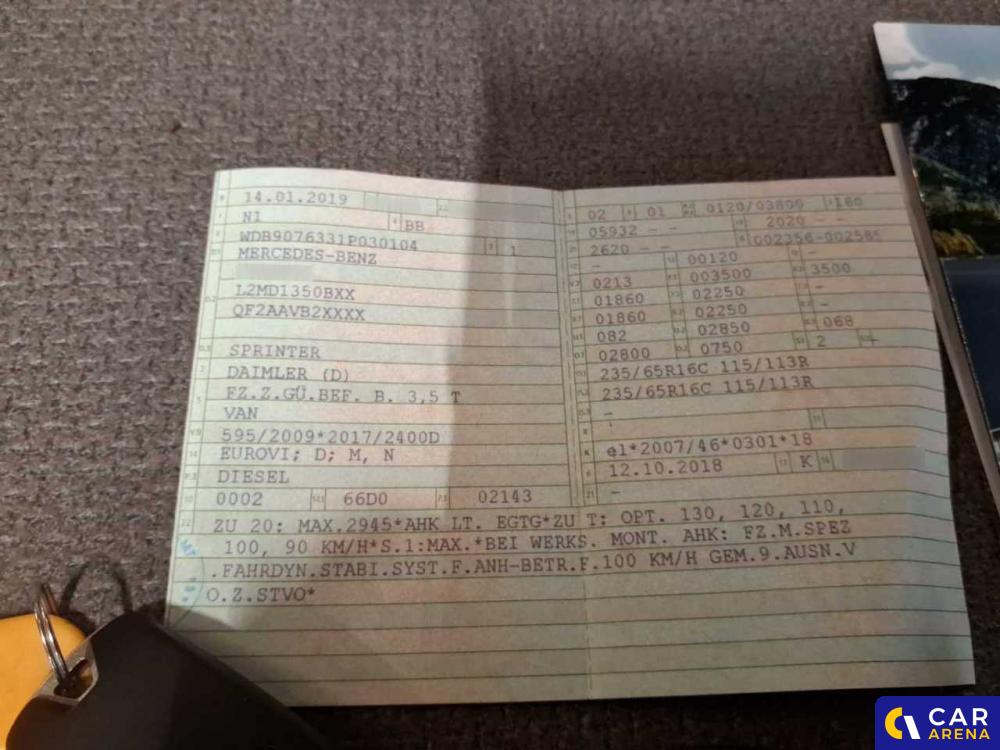 14.01.2019
N1 BB
WDB9076331P030104 1
MERCEDES-BENZ
L2MD1350BXX
QF2AAVB2XXXX
SPRINTER
DAIMLER (D)
FZ.Z.GÜ.BEF. B. 3,5 T
VAN
595/2009*2017/2400D
EUROVI; D; M, N
DIESEL
0002 66D0 02143
02 01 0120/03800 160
05932 - - 2020 - -
2620 - - 002356-002585
- 00120 -
0213 003500 3500
01860 02250 -
01860 02250 -
082 02850 068
02800 0750 2
235/65R16C 115/113R
235/65R16C 115/113R
-
e1*2007/46*0301*18
12.10.2018 K
-
22 ZU 20: MAX.2945*AHK LT. EGTG*ZU T: OPT. 130, 120, 110,
100, 90 KM/H*S.1:MAX.*BEI WERKS. MONT. AHK: FZ.M.SPEZ
.FAHRDYN.STABI.SYST.F.ANH-BETR.F.100 KM/H GEM.9.AUSN.V
O.Z.STVO*
CAR
ARENA